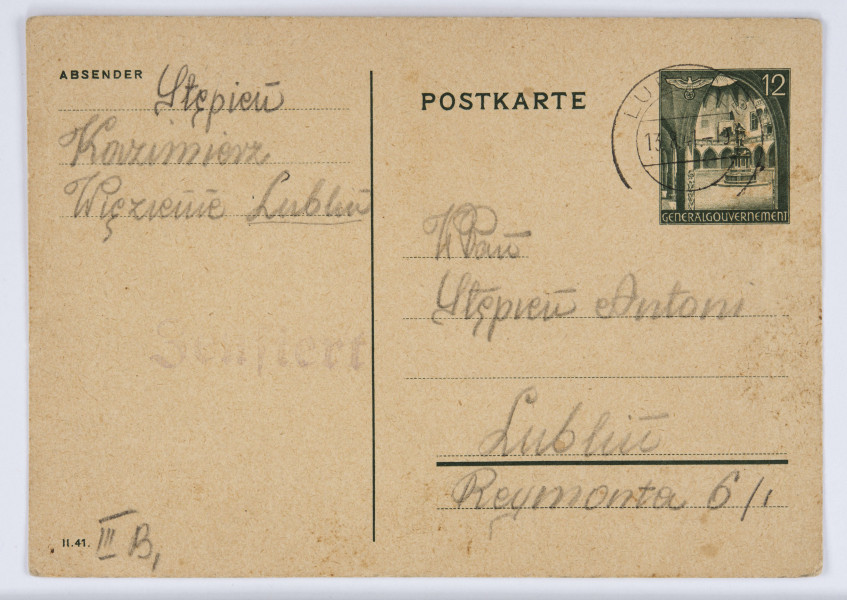 ABSENDER
Stępień
Kazimierz
Więzienie Lublin
Zensiert
II.41.
III B,
POSTKARTE
12
GENERALGOUVERNEMENT
LU
13
WPan
Stępień Antoni
Lublin
Reymonta 6/1